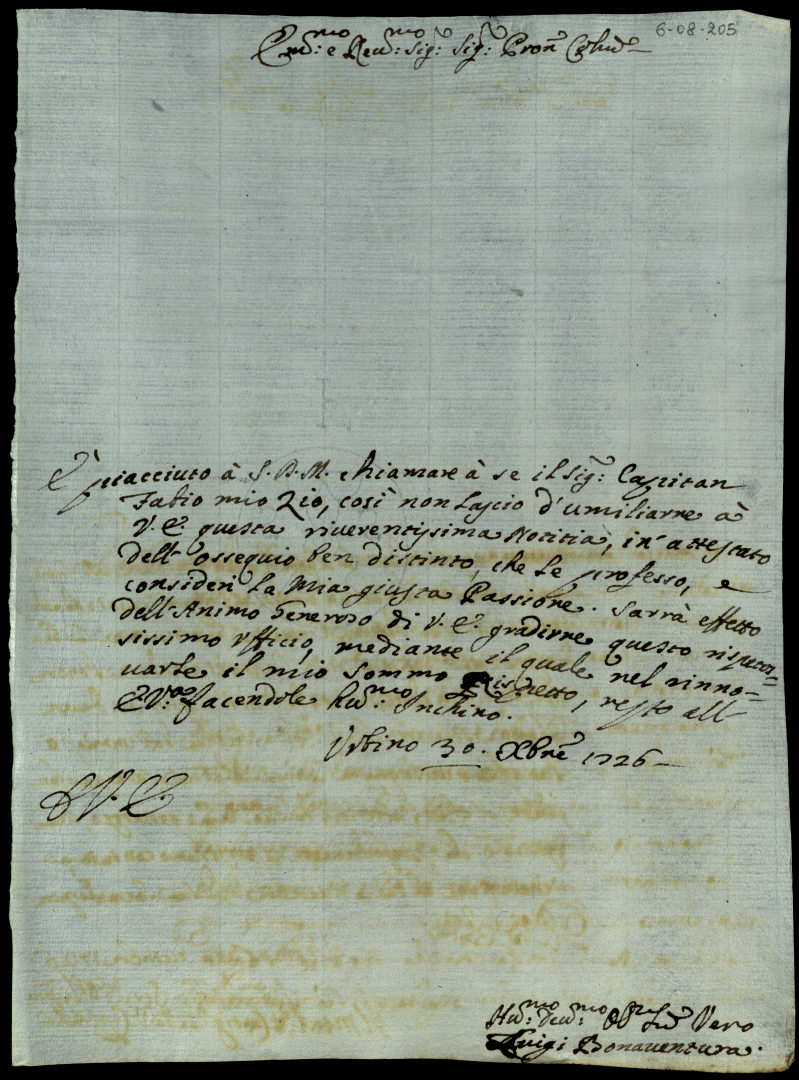 6-08-205
Em.mo e Rev.mo Sig.r Sig.r Pron.e Col.mo
È piacciuto à S. D. M. chiamare à se il Sig.r Capitan
Fabio mio Zio, così non lascio d'umiliarne à
V. E. questa riverentissima Notitia, in attestato
dell'ossequio ben distinto, che le professo, e
consideri la Mia giusta Passione. Sarrà effetto
dell'Animo Generoso di V. E. gradirne questo rispetto-
sissimo Ufficio, mediante il quale nel rinno-
varle il mio sommo Rispetto, resto all'
E. V.ra facendole hu.mo Inchino.
Urbino 30. Xbre 1726
D V. E.
Hu.mo Dev.mo Obl.mo Se.re Vero
Luigi Bonaventura.